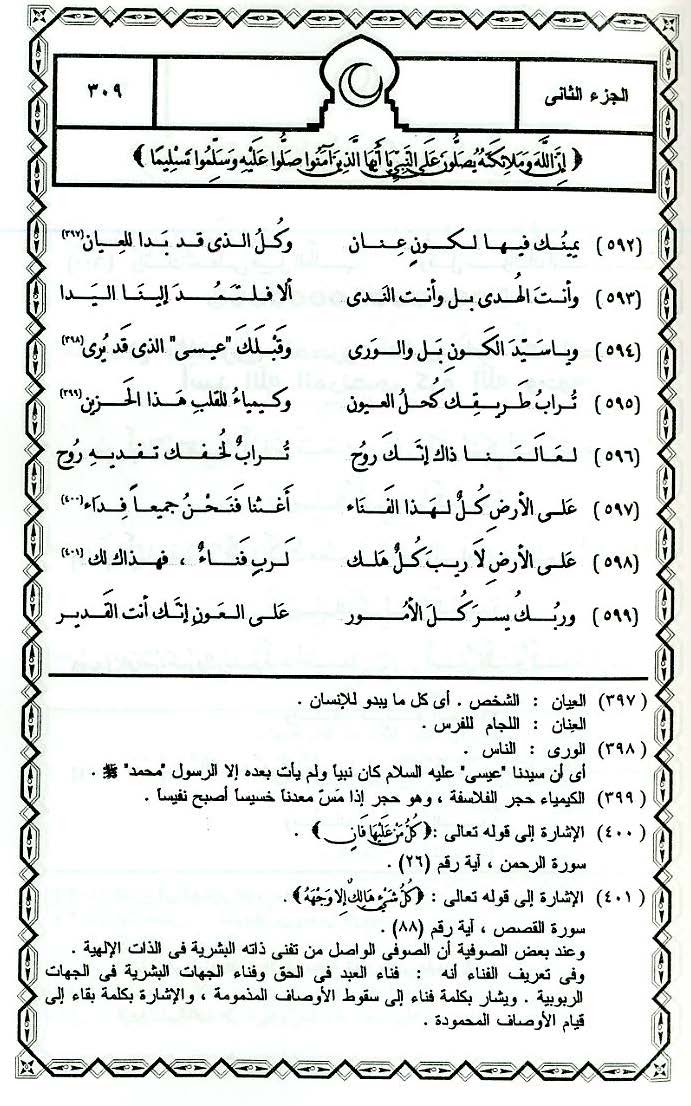 الجزء الثانى
٣٠٩
﴿ إِنَّ اللَّهَ وَمَلَائِكَتَهُ يُصَلُّونَ عَلَى النَّبِيِّ يَا أَيُّهَا الَّذِينَ آمَنُوا صَلُّوا عَلَيْهِ وَسَلِّمُوا تَسْلِيمًا ﴾
(٥٩٢) يمينُك فيها لكونٍ عِنان وكُلُ الذى قد بَدا للعِيان(٣٩٧)
(٥٩٣) وأنتَ الهُدى بل وأنت الندى ألا فلتَمُدَ إلينَا اليَدا
(٥٩٤) وياسَيّدَ الكَونِ بَل والوَرى وقَبْلَكَ "عيسى" الذى قَد يُرى(٣٩٨)
(٥٩٥) تُرابُ طريقِك كُحلُ العيون وكيمياءُ للقلبِ هَذا الحَزين(٣٩٩)
(٥٩٦) لعَالَمنا ذاك إنَّكَ روُح تُرابٌ لخُفك تَفديهِ رُوح
(٥٩٧) عَلى الأرضِ كُلٌ لهَذا الفَنَاء أغثْنا فَنَحْنُ جميعاً فِداء(٤٠٠)
(٥٩٨) عَلى الأرضِ لاَ ريبَ كُلٌ هَلك لَربٍ فَناءٌ ، فهذاك لك(٤٠١)
(٥٩٩) وربُكُ يسرَ كُلَ الأمُور على العَونِ إنَّك أنت القَدير
(٣٩٧) العيان : الشخص . أى كل ما يبدو للإنسان .
العِنان : اللجام للفرس .
(٣٩٨) الورى : الناس .
أى أن سيدنا "عيسى" عليه السلام كان نبياً ولم يأت بعده إلا الرسول "محمد" ﷺ .
(٣٩٩) الكيمياء حجر الفلاسفة ، وهو حجر إذا مَسّ معدناً خسيساً أصبح نفيساً .
(٤٠٠) الإشارة إلى قوله تعالى :﴿ كُلُّ مَنْ عَلَيْهَا فَانٍ ﴾ .
سورة الرحمن ، آية رقم (٢٦) .
(٤٠١) الإشارة إلى قوله تعالى : ﴿ كُلُّ شَيْءٍ هَالِكٌ إِلَّا وَجْهَهُ ﴾ .
سورة القصص ، آية رقم (٨٨) .
وعند بعض الصوفية أن الصوفى الواصل من تفنى ذاته البشرية فى الذات الإلهية .
وفى تعريف الفناء أنه : فناء العبد فى الحق وفناء الجهات البشرية فى الجهات
الربوبية . ويشار بكلمة فناء إلى سقوط الأوصاف المذمومة ، والإشارة بكلمة بقاء إلى
قيام الأوصاف المحمودة .